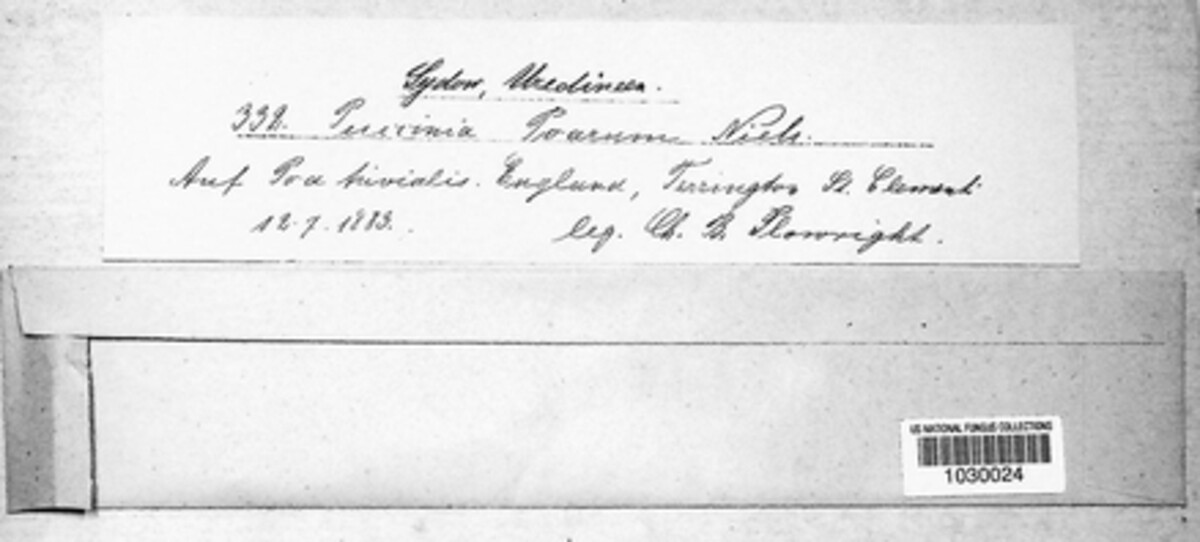 Sydow, Uredineen.
332. Puccinia Poarum Niels.
Auf Poa trivialis. England, Terrington St. Clement
12.7.1883.
leg. Ch. B. Plowright.
US NATIONAL FUNGUS COLLECTIONS
1030024